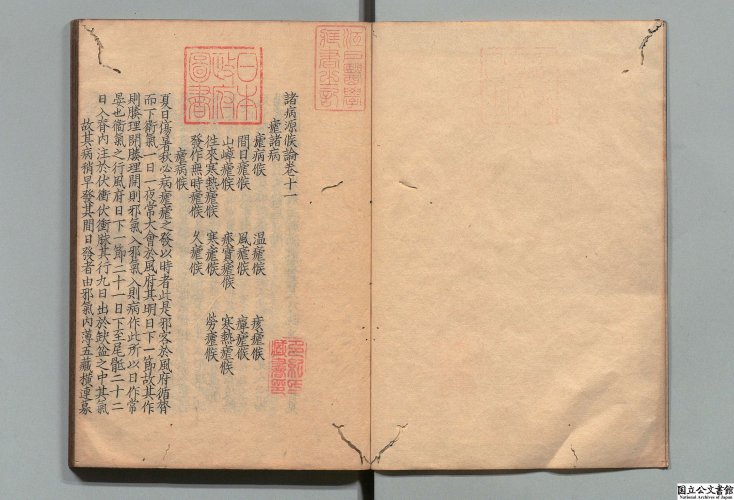 諸病源候論巻十一
瘧諸病
瘧病候 温瘧候 痎瘧候
間日瘧候 風瘧候 瘴瘧候
山瘴瘧候 痰實瘧候 寒熱瘧候
往來寒熱瘧候 寒瘧候 勞瘧候
發作無時瘧候 久瘧候
瘧病候
夏日傷暑秋必病瘧瘧之發以時者此是邪客於風府循膂
而下衛氣一日一夜常大會於風府其明日下一節故其作
則腠理開腠理開則邪氣入邪氣入則病作此所以日作常
晏也衞氣之行風府日下一節二十一日下至尾骶二十二
日入脊內注於伏衝伏衝脉其行九日出於缺盆之中其氣
故其病稍早發其間日發者由邪氣內薄五藏橫連募
日本
政府
圖書
国立公文書館
National Archives of Japan